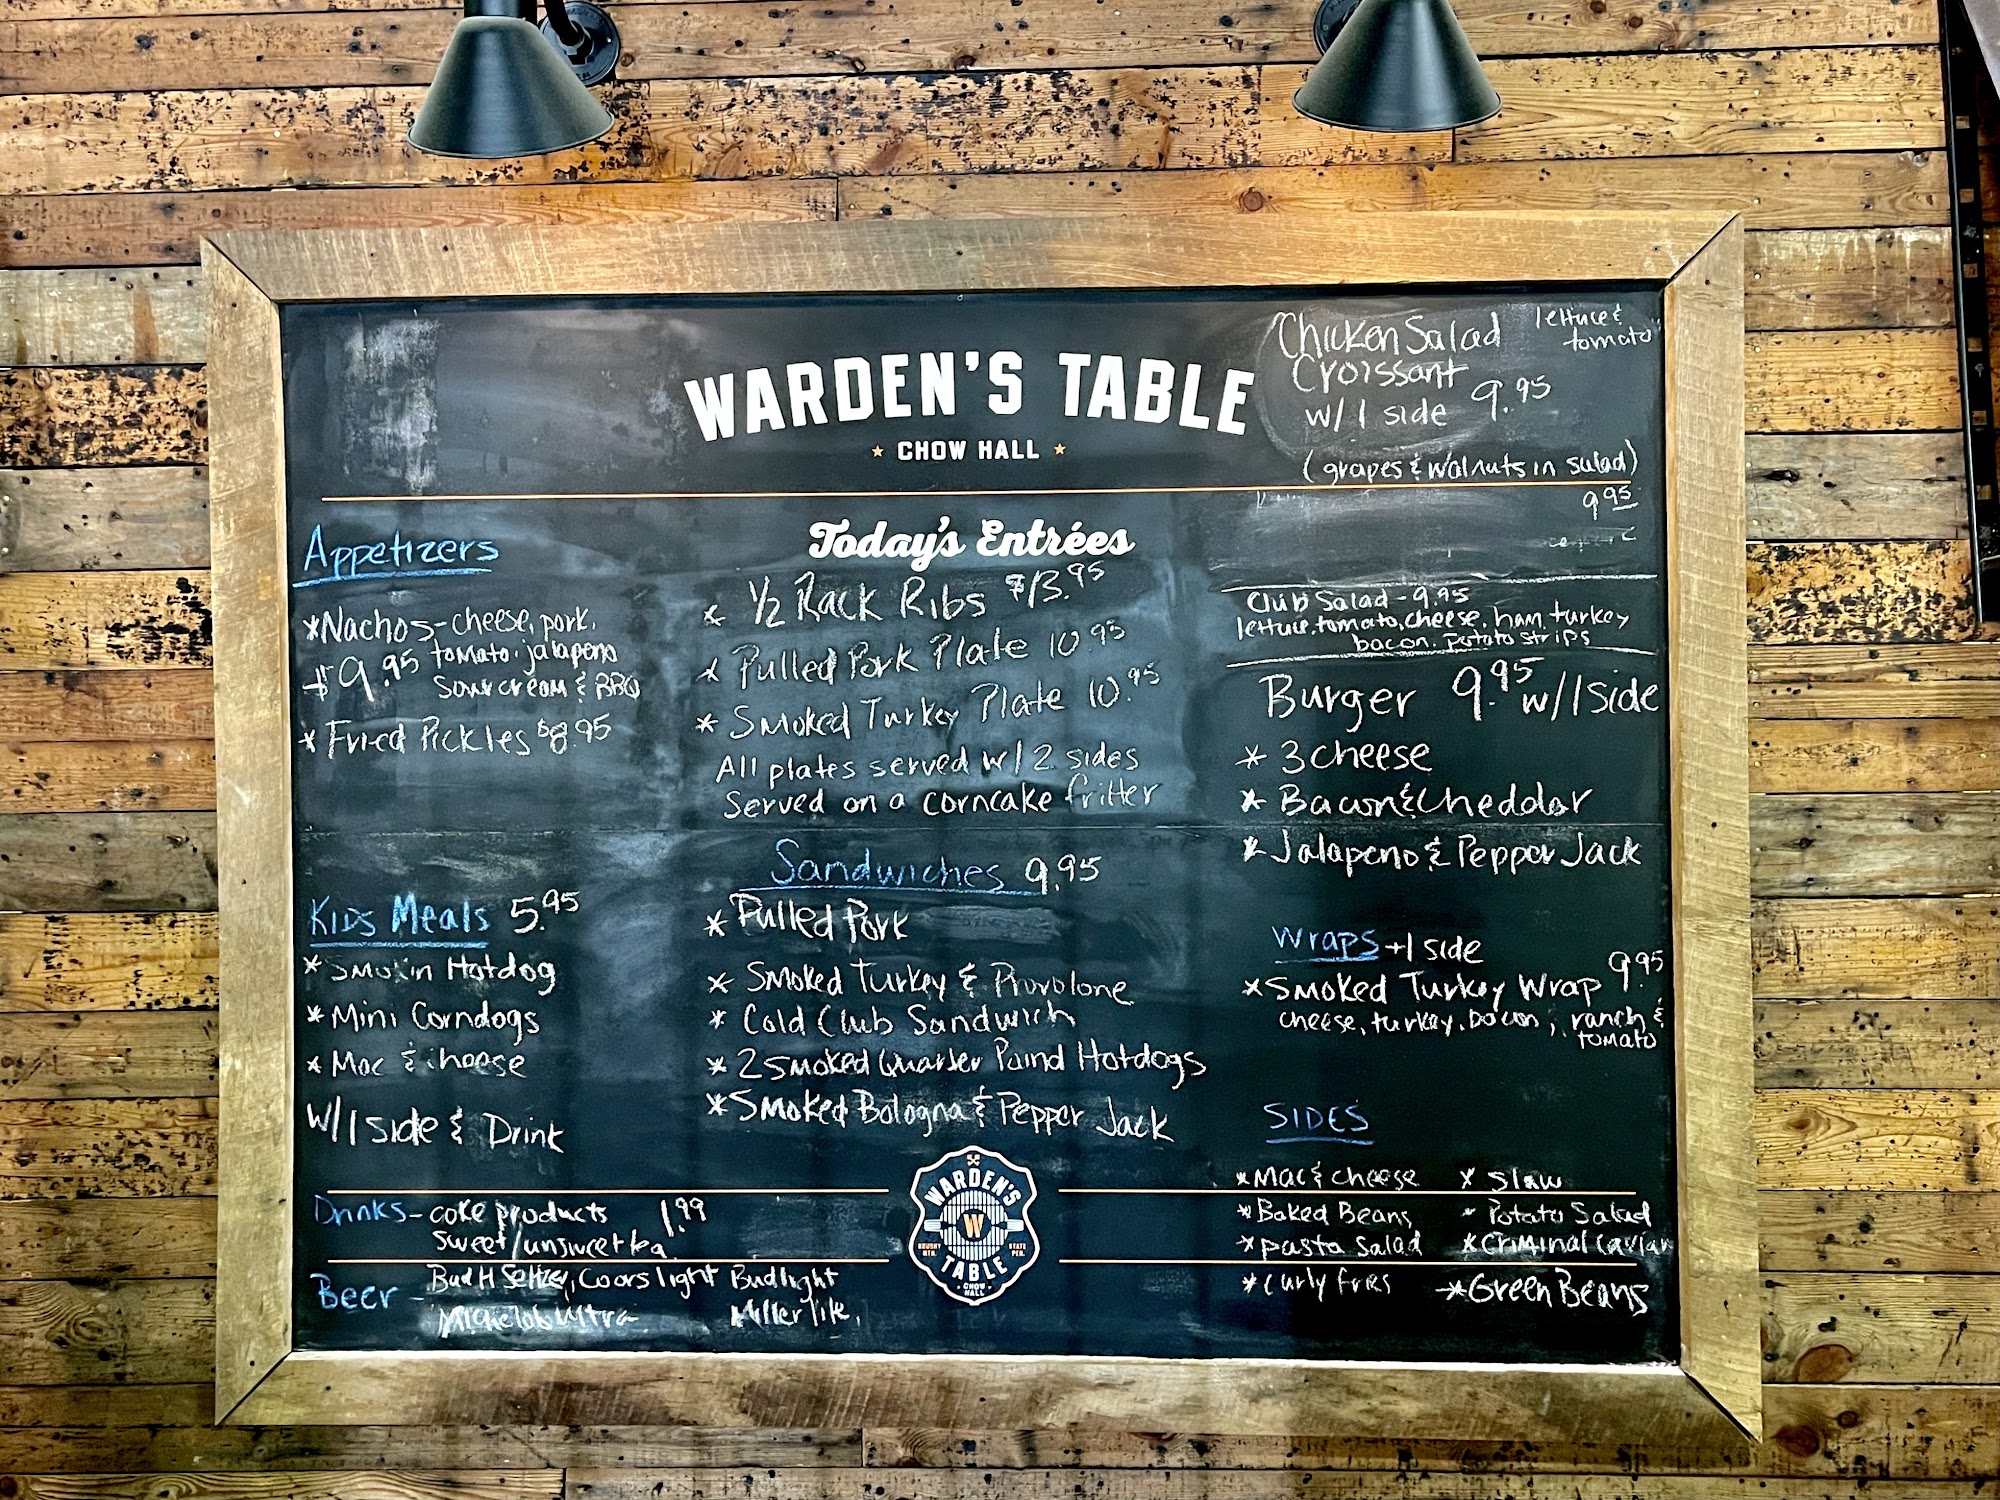 WARDEN'S TABLE
★ CHOW HALL ★
Chicken Salad
Croissant
w/ 1 side 9.95
lettuce &
tomato
(grapes & walnuts in salad)
9.95
Appetizers
*Nachos-cheese, pork,
$9.95 tomato, jalapeno
sour cream & BBQ
* Fried Pickles $8.95
Kids Meals 5.95
* Smokin Hotdog
* Mini Corndogs
* Mac & cheese
w/ 1 side & Drink
Today's Entrées
* 1/2 Rack Ribs $13.95
* Pulled Pork Plate 10.95
* Smoked Turkey Plate 10.95
All plates served w/ 2 sides
Served on a corncake fritter
Sandwiches 9.95
* Pulled Pork
* Smoked Turkey & Provolone
* Cold Club Sandwich
* 2 Smoked Quarter Pound Hotdogs
* Smoked Bologna & Pepper Jack
Club Salad - 9.95
lettuce, tomato, cheese, ham, turkey
bacon, potato strips
Burger 9.95 w/ 1 side
* 3 cheese
* Bacon & Cheddar
* Jalapeno & Pepper Jack
Wraps +1 side
* Smoked Turkey Wrap 9.95
cheese, turkey, bacon, ranch &
tomato
SIDES
* Mac & cheese * Slaw
* Baked Beans * Potato Salad
* pasta Salad * Criminal Caviar
* Curly fries * Green Beans
Drinks - coke products 1.99
sweet/unsweet tea
Beer - Bud H Seltzer, Coors light Budlight
Michelob Ultra Miller lite.
WARDEN'S
W
BRUSHY MTN. STATE PEN.
TABLE
CHOW
HALL